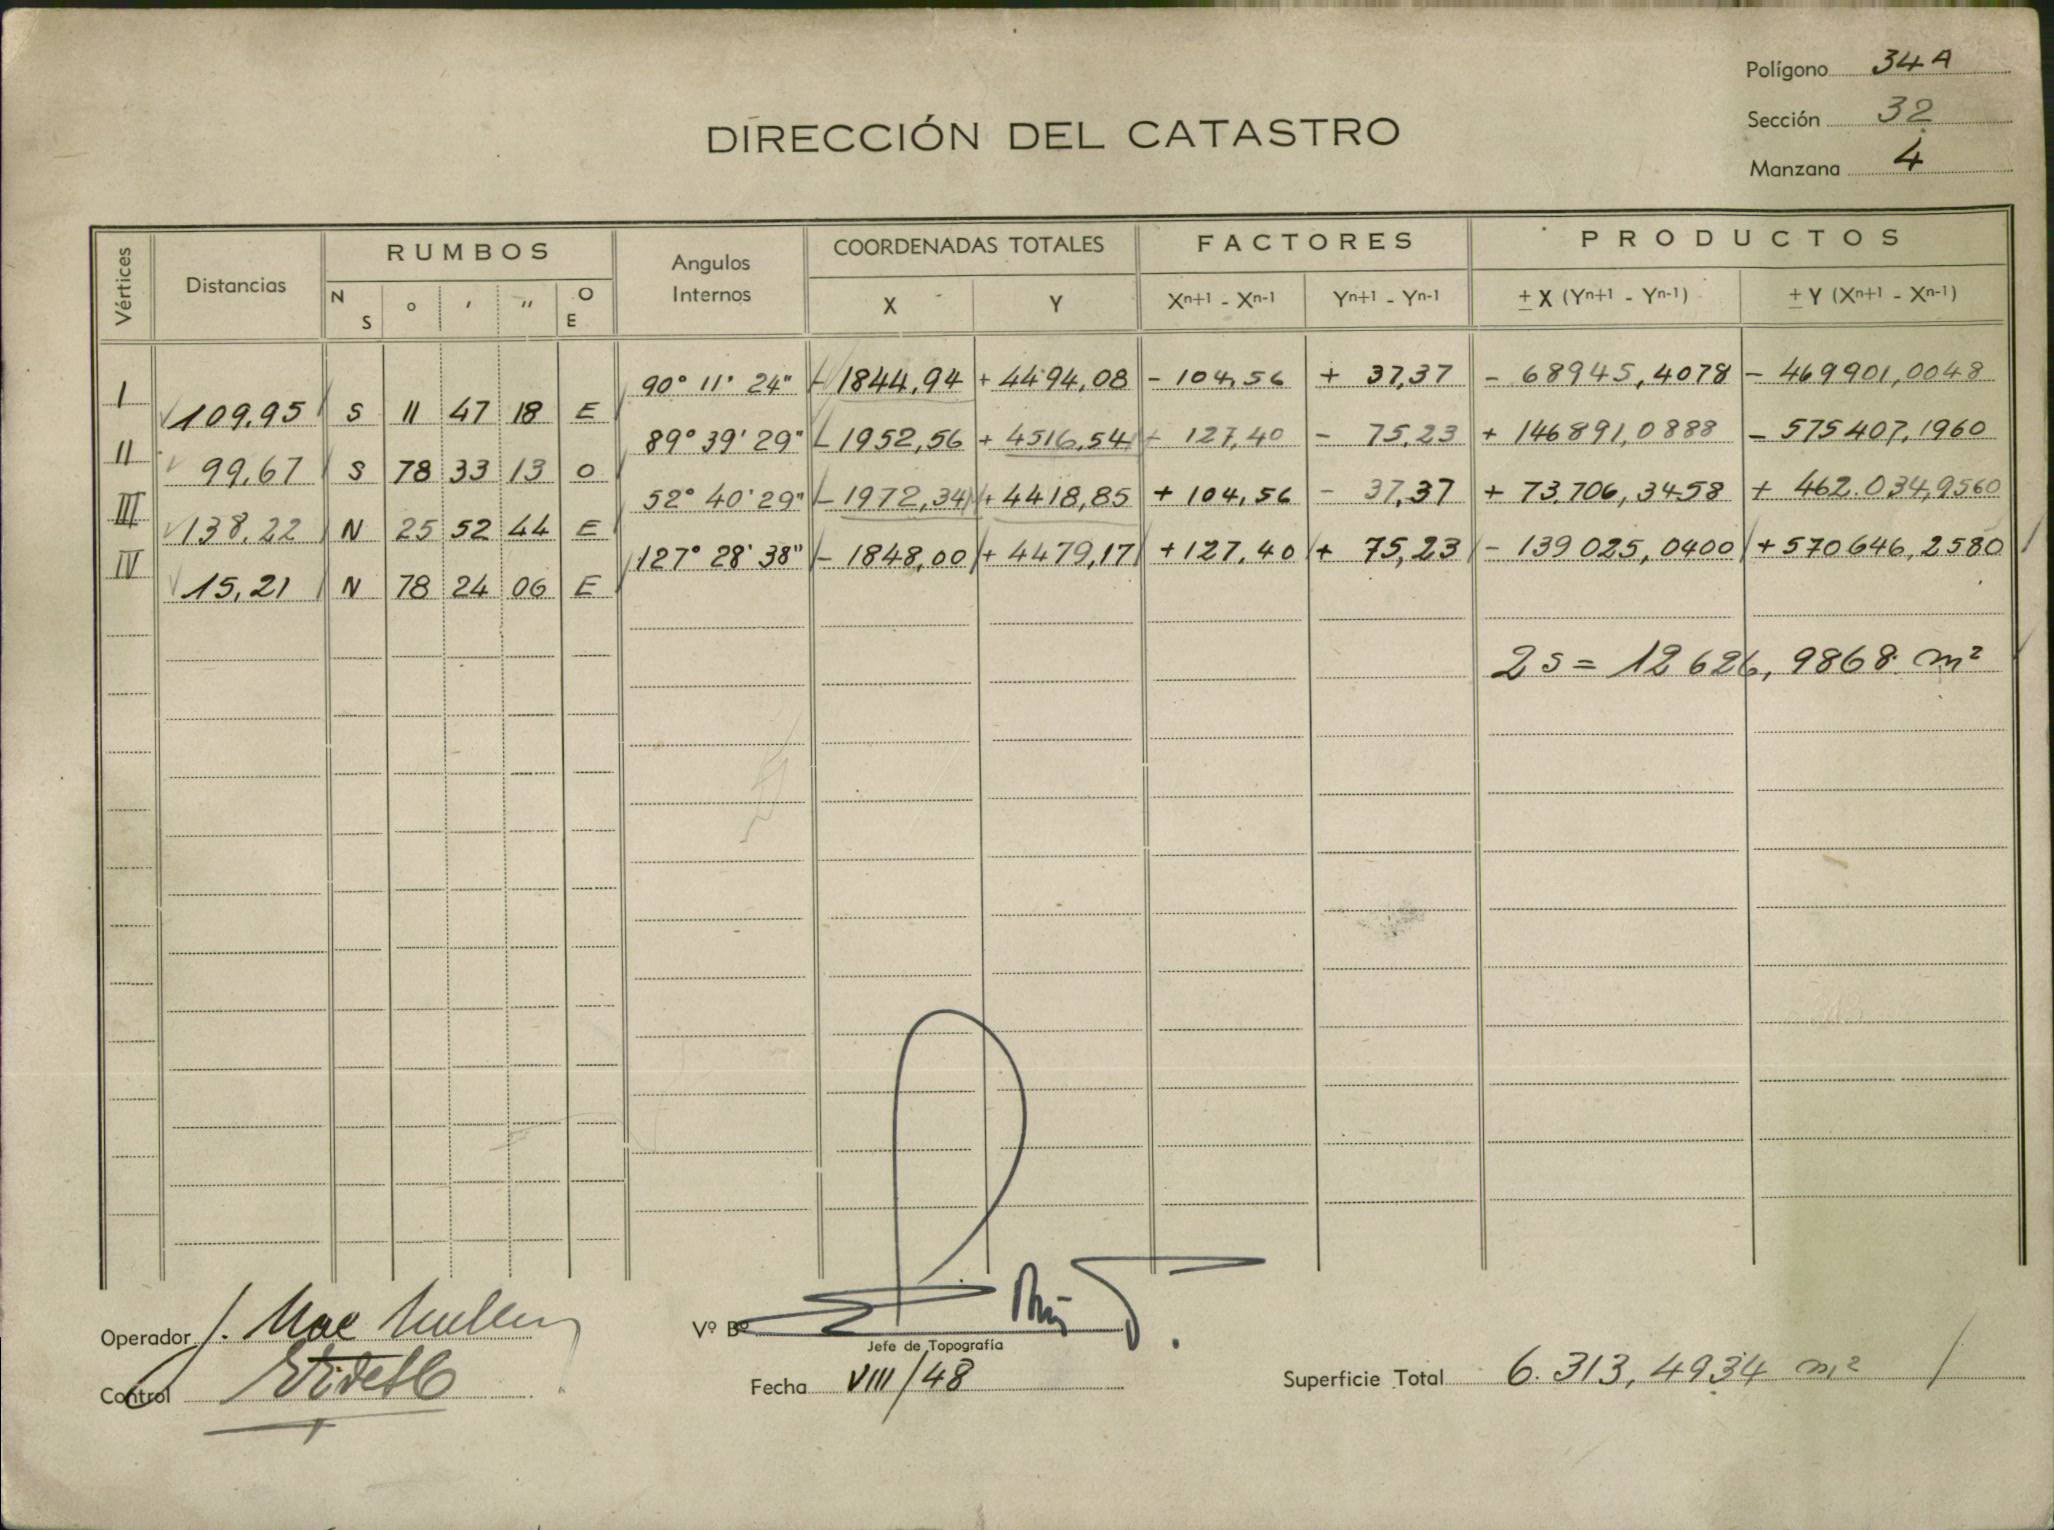 Polígono 34 A
Sección 32
Manzana 4
DIRECCIÓN DEL CATASTRO
Vértices Distancias RUMBOS Angulos Internos COORDENADAS TOTALES FACTORES PRODUCTOS
N S ° ' " O E X Y Xn+1 - Xn-1 Yn+1 - Yn-1 ± X (Yn+1 - Yn-1) ± Y (Xn+1 - Xn-1)
I 90° 11' 24" - 1844,94 + 4494,08 - 104,56 + 37,37 - 68945,4078 - 469901,0048
109,95 S 11 47 18 E
II 89° 39' 29" - 1952,56 + 4516,54 - 127,40 - 75,23 + 146891,0888 - 575407,1960
99,67 S 78 33 13 O
III 52° 40' 29" - 1972,34 + 4418,85 + 104,56 - 37,37 + 73.706,3458 + 462.034,9560
138,22 N 25 52 44 E
IV 127° 28' 38" - 1848,00 + 4479,17 + 127,40 + 75,23 - 139025,0400 + 570646,2580
15,21 N 78 24 06 E
2 s = 12626,9868 m²
Operador J. Mac
Vº Bº
Jefe de Topografía
Control
Fecha VIII/48
Superficie Total 6.313,4934 m²